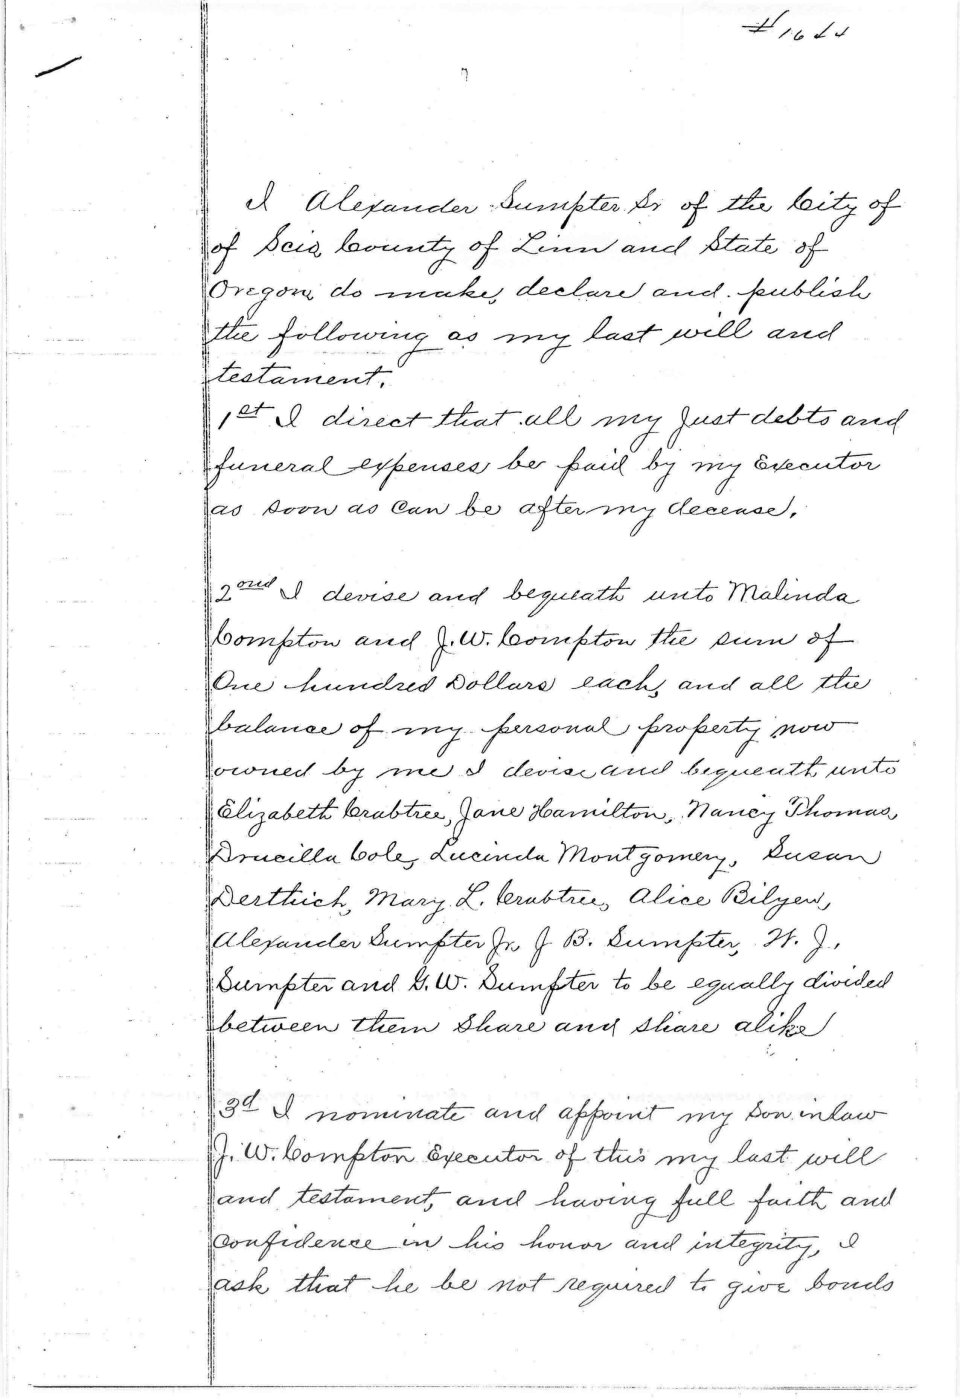 I Alexander Sumpter Sr of the City of
of Scio, County of Linn and State of
Oregon, do make, declare and publish
the following as my last will and
testament.
1st I direct that all my Just debts and
funeral expenses be paid by my Executor
as soon as Can be after my decease.
2ond I devise and bequeath unto Malinda
Compton and J. W. Compton the sum of
One hundred Dollars each, and all the
balance of my personal property now
owned by me I devise and bequeath unto
Elizabeth Crabtree, Jane Hamilton, Nancy Thomas,
Drucilla Cole, Lucinda Montgomery, Susan
Derthick, Mary L. Crabtree, Alice Bilyeu,
Alexander Sumpter Jr, J B. Sumpter, H. J.
Sumpter and G. W. Sumpter to be equally divided
between them Share and share alike
3d I nominate and appoint my Son in law
J. W. Compton Executor of this my last will
and testament, and having full faith and
Confidence in his honor and integrity, I
ask that he be not required to give bonds